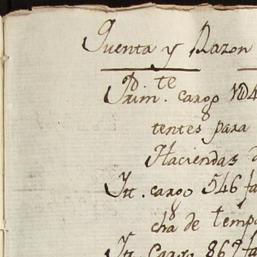 Quenta y Razon
Prim.te cargo
tentes para
Haciendas d
Itt. cargo 546 fa
cha de tempo
Itt. Cargo 869 fa